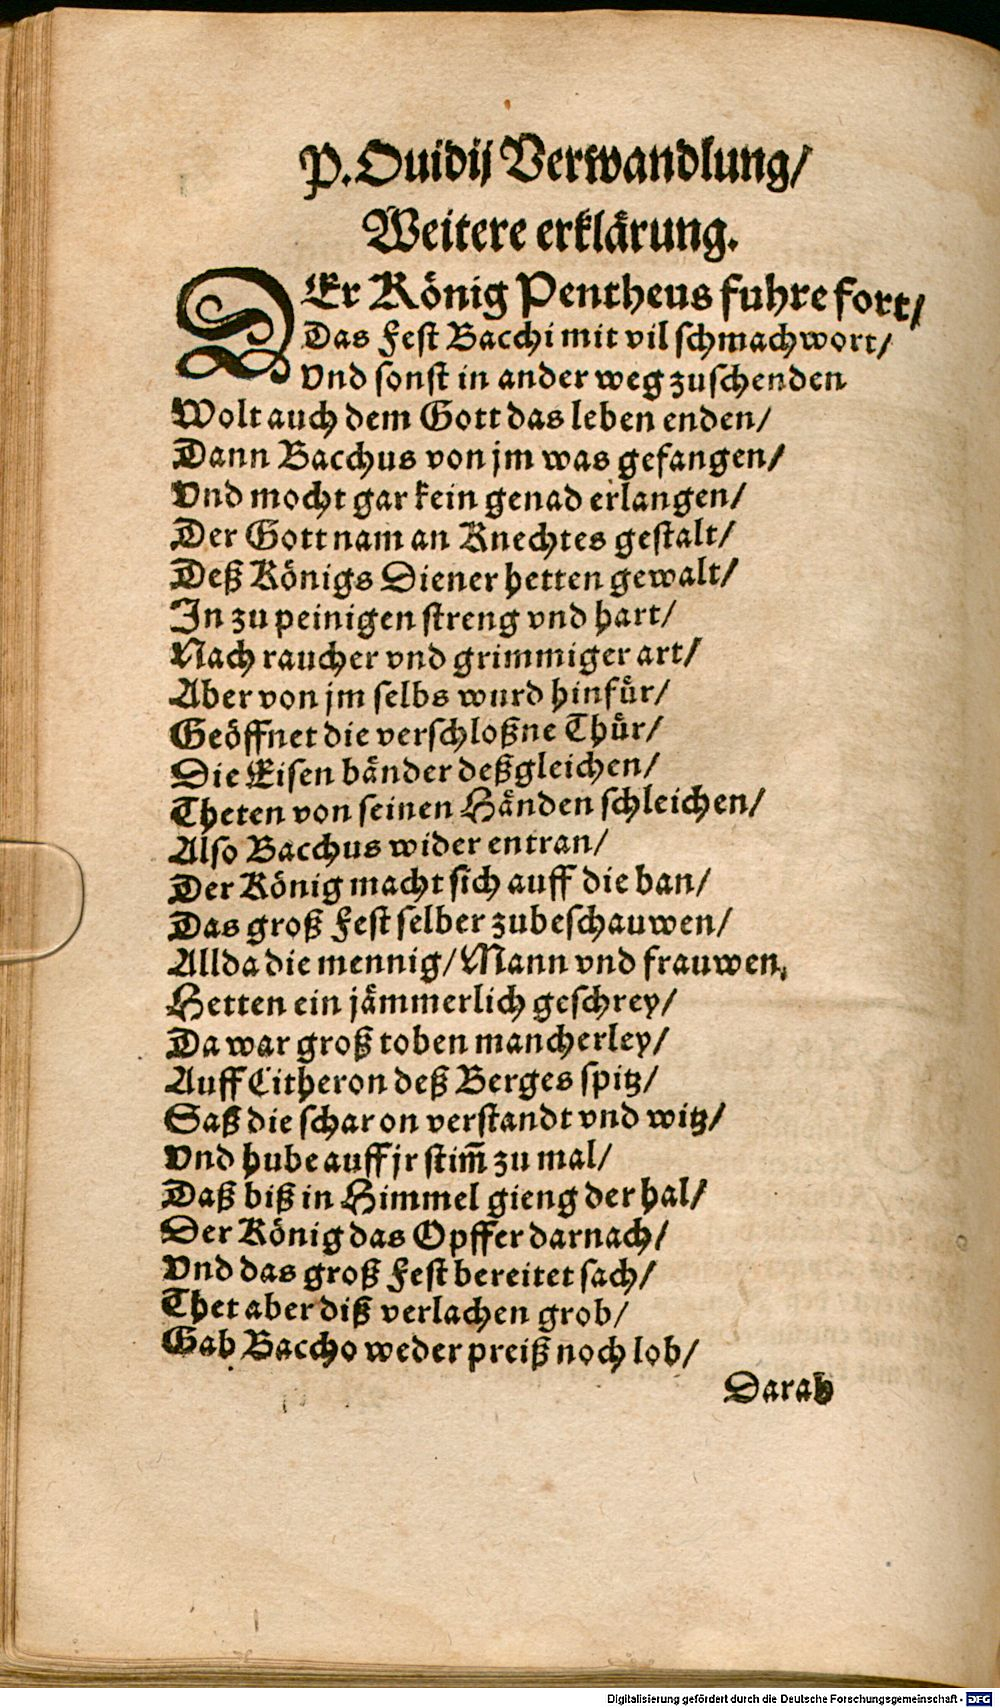 P. Ouidij Verwandlung/
Weitere erklärung.
DEr König Pentheus fuhre fort/
Das Fest Bacchi mit vil schmachwort/
Vnd sonst in ander weg zuschenden
Wolt auch dem Gott das leben enden/
Dann Bacchus von jm was gefangen/
Vnd mocht gar kein genad erlangen/
Der Gott nam an Knechtes gestalt/
Deß Königs Diener hetten gewalt/
In zu peinigen streng vnd hart/
Nach raucher vnd grimmiger art/
Aber von jm selbs wurd hinfür/
Geöffnet die verschloßne Thür/
Die Eisen bänder deßgleichen/
Theten von seinen Händen schleichen/
Also Bacchus wider entran/
Der König macht sich auff die ban/
Das groß Fest selber zubeschauwen/
Allda die mennig/ Mann vnd frauwen,
Hetten ein jämmerlich geschrey/
Da war groß toben mancherley/
Auff Citheron deß Berges spitz/
Saß die schar on verstandt vnd witz/
Vnd hube auff jr stim̃ zu mal/
Daß biß in Himmel gieng der hal/
Der König das Opffer darnach/
Vnd das groß Fest bereitet sach/
Thet aber diß verlachen grob/
Gab Baccho weder preiß noch lob/
Darab
Digitalisierung gefördert durch die Deutsche Forschungsgemeinschaft - DFG